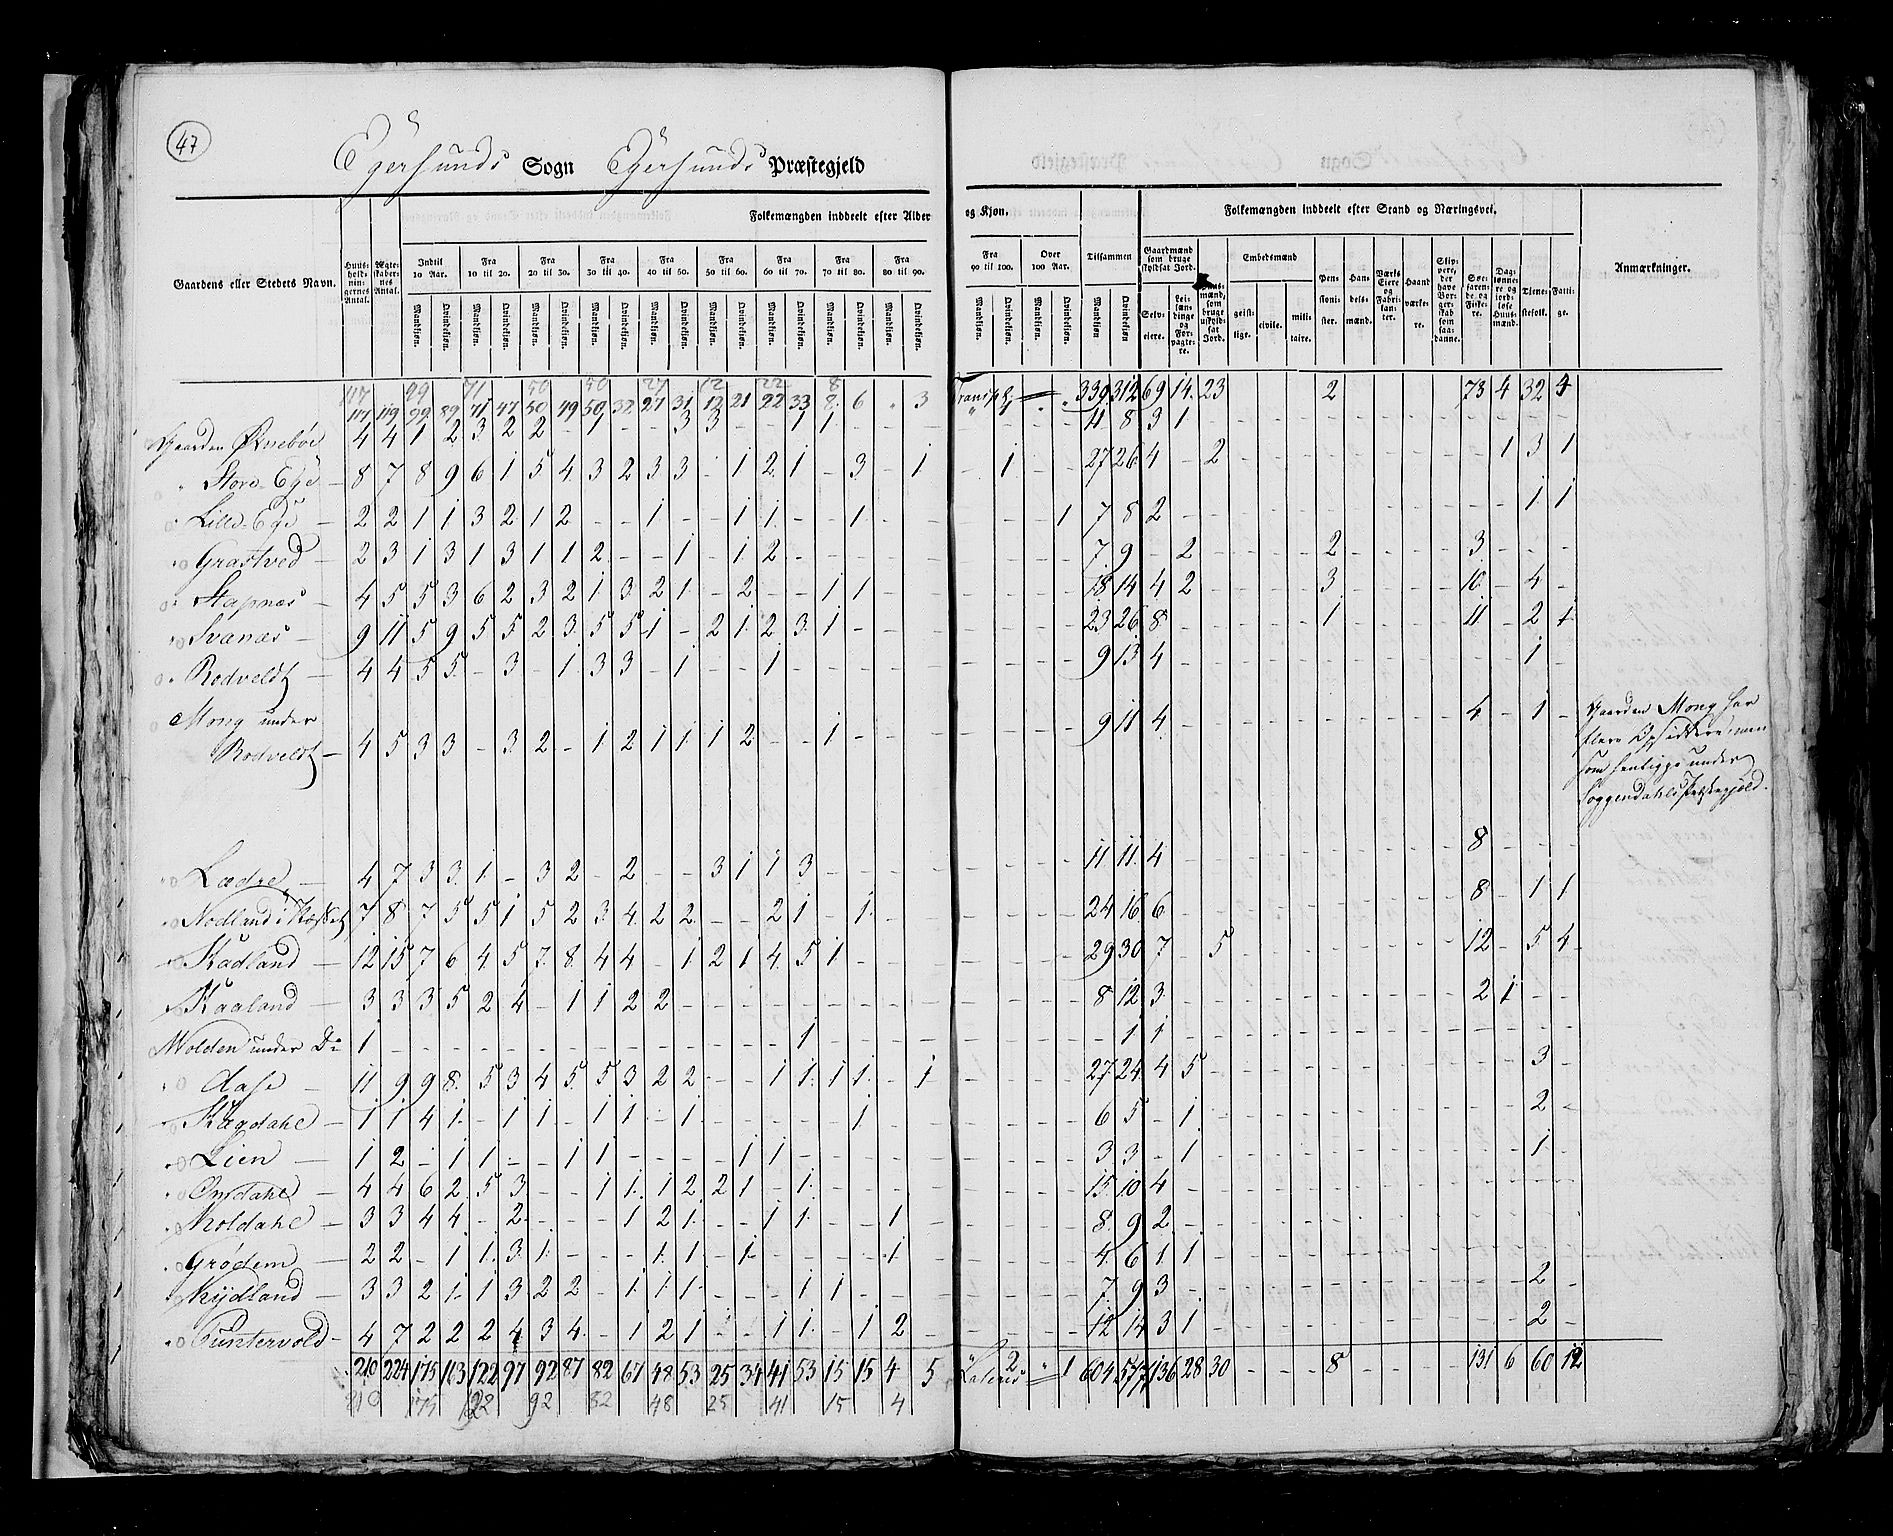 47
Egersunds Sogn Egersunds Præstegjeld
Folkemængden inddeelt efter Alder og Kjøn. Folkemængden inddeelt efter Stand og Næringsvei.
Gaardens eller Stedets Navn. Huusholdningernes Antal. Ægteskabernes Antal. Indtil 10 Aar. Fra 10 til 20. Fra 20 til 30. Fra 30 til 40. Fra 40 til 50. Fra 50 til 60. Fra 60 til 70. Fra 70 til 80. Fra 80 til 90. Fra 90 til 100. Over 100 Aar. Tilsammen Gaardmænd som bruge skyldsat Jord. Huusmænd, som bruge uskyldsat Jord. Embedsmænd Pensionister. Handelsmænd. Værks Eiere og Fabrikanter. Haandværkere. Skippere, der have Borgerskab som saadanne. Søefarende og Fiskere. Daglønnere og jordløse Huusmænd. Tjenestefolk. Fattige. Anmærkninger.
Mandkjøn. Qvindekjøn. Mandkjøn. Qvindekjøn. Mandkjøn. Qvindekjøn. Mandkjøn. Qvindekjøn. Mandkjøn. Qvindekjøn. Mandkjøn. Qvindekjøn. Mandkjøn. Qvindekjøn. Mandkjøn. Qvindekjøn. Mandkjøn. Qvindekjøn. Mandkjøn. Qvindekjøn. Mandkjøn. Qvindekjøn. Mandkjøn Qvindekjøn Selveiere. Leilændinge og Forpagtere. geistlige. civile. militaire.
117 99 71 50 50 27 12 22 8
117 119 99 89 71 47 50 49 50 32 27 31 12 21 22 33 8 6 " 3 Transpt " " 339 312 69 14 23 2 78 4 32 4
Gaarden Øknebøe 4 4 1 2 3 2 2 - 1 - - 3 3 - - 1 1 - 11 8 3 1
" Store-Ege 8 7 8 9 6 1 5 4 3 2 3 3 - 1 2 1 - 3 - 1 - 1 - - 27 26 4 - 2 1 3 1
Lille-Ege 2 2 1 1 3 2 1 2 - - 1 - - 1 1 - - 1 - - - - - 1 7 8 2 - 1 1
Grastved 2 3 1 3 1 3 1 1 2 - - 1 - 1 2 - 7 9 - 2 - 2 - 3 -
Stapnæs 4 5 5 3 6 2 3 2 1 3 2 1 - 2 - - 1 1 - 18 14 4 2 - 3 - 10 - 4 -
Svanæs 9 11 5 9 5 5 2 3 5 5 1 - 2 1 2 3 1 - 23 26 8 - 1 - 11 - 2 1
Rodveldt 4 4 5 5 - 3 - 1 3 3 - 1 - - 1 - 9 13 4 - 1 -
Mong under
Rodveldt 4 5 3 3 - 3 2 - 1 2 1 1 1 2 - - 1 - 9 11 4 - 4 - 1 -
Gaarden Mong har
flere Opsiddere, men
som henligge under
Soggendahls Præstegjeld.
Lædre 4 7 3 3 1 - 3 2 - 2 - - 3 1 1 3 - 11 11 4 - 8 -
Nodland i 7 8 7 5 5 1 5 2 3 4 2 2 - - 2 1 - 1 - 24 16 6 - 8 - 1 1
Kadland 12 15 7 6 4 5 7 8 4 4 - 1 2 1 4 5 1 - 29 30 7 - 5 - 12 - 5 4
Kaaland 3 3 3 5 2 4 - 1 1 2 2 - 8 12 3 - 2 1 -
Molden under Do 1 - 1 - 1 1 -
Aase 11 9 9 8 5 3 4 5 5 3 2 2 - - 1 1 1 1 - 1 27 24 4 5 - 3 -
Kægdahl 1 1 4 1 - 1 1 - 1 1 - 1 - 1 - 6 5 - 1 - 2 -
Lien 1 2 - 1 1 - - 1 1 - 1 1 - 3 3 - 1 - 1 -
Omdahl 4 4 6 2 5 3 - - 1 1 1 2 2 1 - 1 - 15 10 4 -
Koldahl 3 3 4 4 - 2 - - - 1 2 1 - - 1 1 - - 1 - 8 9 2 -
Grødem 2 2 - 1 1 3 1 - - - 1 1 - 1 - 1 - 4 6 1 1 -
Skydland 3 3 2 1 1 3 2 2 - 1 1 1 - - - 1 1 - 7 9 3 - 2 -
Puntervold 4 7 2 2 2 4 3 4 - 1 2 1 - - 1 1 - 1 2 - 12 14 3 1 - 2 -
210 224 175 163 122 97 92 87 82 67 48 53 25 34 41 53 15 15 4 5 Lateris 2 " 1 604 577 136 28 30 - - - 8 - - - - 131 6 60 12
210 175 122 92 82 48 25 41 15 4